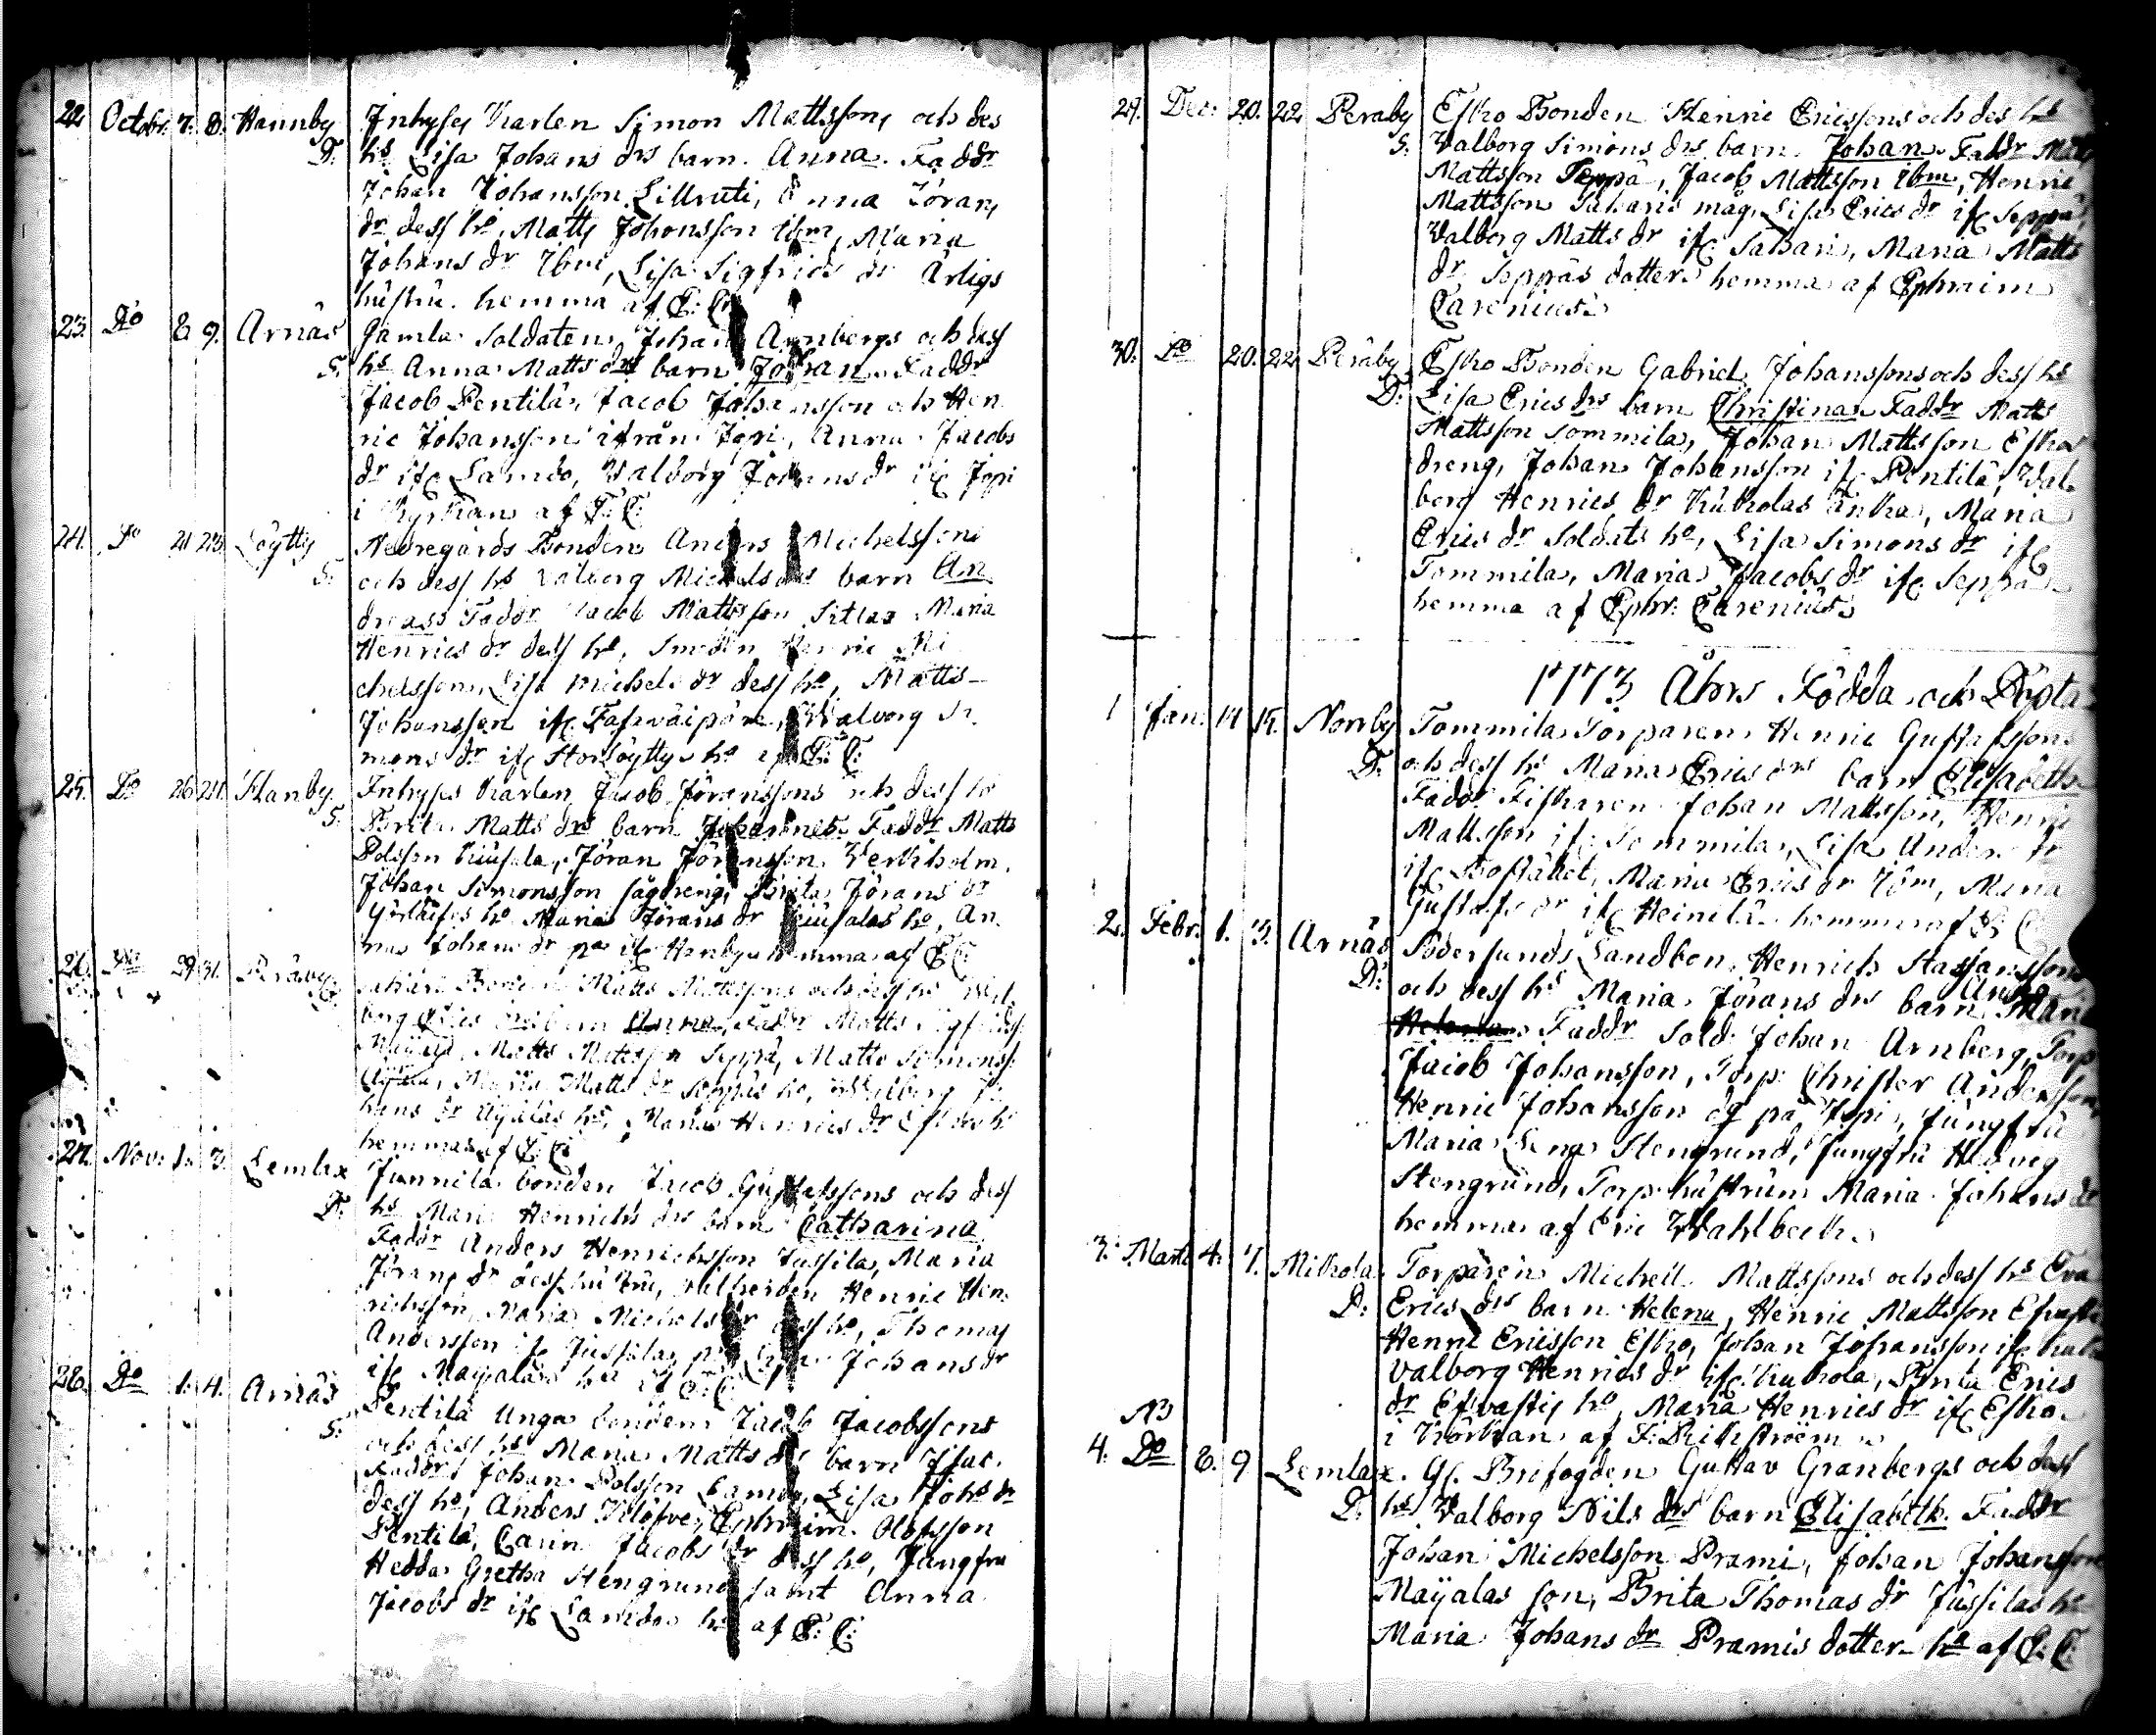 22. Octobr. 7. 8. Hannby Inhyses Karlen Simon Mattssons och des
D: hs Lisa Johans drs barn. Anna. Faddr
Johan Johansson Lillruti, Anna Jörans
dr dess ho, Matts Johansson ibm, Maria
Johans dr ibm, Lisa Sigfrids dr Ärligs
hustru. hemma af E: C:
23. Do 8 9. Arnäs Gamla Soldaten Johan Arnbergs och dess
S. hs Anna Matts drs barn Johan. Faddr
Jacob Pentilä, Jacob Johansson och Hen
ric Johansson ifrån Jopi, Anna Jacobs
dr if Lamdo, Valborg Johans dr if Jopi
i Kyrkian af E: C:
24. Do 21 23. Löytty Nedregårds Bonden Anders Michelssons
S: och dess hs Valborg Michels drs barn An
dreas Faddr Jacob Mattsson Maria
Henrics dr dess ho, Smeden Henric Mi
chelsson, Lisa Michels dr dess ho, Matts
Johansson if Walborg Si
mons dr if Storlöytty ho af E: C:
25. Do 26 27. Hanby Inhyses Karlen Jacob Jöranssons och dess hs
S. Brita Matts drs barn Johannes. Faddr Matts
Polsson Kiusala, Jöran Jöransson Verkholm,
Johan Simonsson sågdreng, Brita Jörans dr
ho Maria Jörans dr Kiusalas ho, An
na Johans dr if Hanby hemma af E: C:
26. Do 29 31. Peräby Sahari Bonden Matts Mattssons och dess hs Wal
borg Erics drs barn Anna, Faddr Matts Sigfrids
Matts Mattsson Seppä, Matts Simonss:
Maria Matts dr Seppäs ho, Walborg Jo
hans dr Äijäläs ho, Maria Henrics dr Eskos ho
hemma af E: C:
27. Nov: 1. 3. Lemlax Junnila bonden Jacob Gustafssons och dess
D: hs Maria Henrichs drs barn Catharina
Faddr Anders Henrichsson Jussila, Maria
Jörans dr dess hustru, Henric Hen
richsson, Maria Michels dr dess ho, Thomas
Andersson if Jussila, Johans dr
if Mayalas ho af E: C:
28. Do 1. 4. Arnäs Pentilä Unga bonden Jacob Jacobssons
S: och dess hs Maria Matts drs barn Isac.
Faddr Johan Polsson Lamdo, Lisa Johs dr
dess ho, Anders Klöfve, Ephraim Olofsson
Pentilä, Carin Jacobs dr dess ho, Jungfru
Hedda Gretha Stengrund samt Anna
Jacobs dr if Lamdo ho af E: C:
29. Dec: 20. 22 Peräby Esko Bonden Henric Ericssons och des hs
S. Valborg Simons drs barn Johan. Faddr Matts
Mattsson Seppä, Jacob Mattsson ibm, Henric
Mattsson Saharis mag, Lisa Erics dr if Seppä,
Valborg Matts dr if Sahari, Maria Matts
dr Seppäs dotter hemma af Ephraim
Carenius.
30. Do 20. 22 Peräby Esko Bonden Gabriel Johanssons och dess hs
D: Lisa Erics drs barn Christina. Faddr Matts
Mattsson Tommila, Johan Mattsson Esko
dreng, Johan Johansson if Pentilä, Val
borg Henrics dr Kukolas Enka, Maria
Erics dr Soldats ho, Lisa Simons dr if
Tommila, Maria Jacobs dr if Seppä
hemma af Ephr: Carenius.
1773 Åhrs Födda och Döpta
1 Jan: 14 15. Norrby Tommila Torparen Henric Gustafssons
D: och dess hs Maria Erics drs barn Elisabeth.
Faddr Fiskaren Johan Mattsson, Henric
Mattsson if Tommila, Lisa Anders dr
if Bostället, Maria Erics dr ibm, Maria
Gustafs dr if Heinilä hemma af E: C:
2. Febr. 1. 3. Arnäs Södersunds Landbon Henrich Staffanssons
D: och dess hs Maria Jörans drs barn Anna Maria
Helena Faddr Sold. Johan Arnberg, Torp
Jacob Johansson, Torp: Christer Andersson,
Henric Johansson dg på Jopi, Jungfru
Maria Lena Stengrund, Jungfru Hedvig
Stengrund, Torp hustrun Maria Johans dr
hemma af Eric Wahlbeck.
3. Marti 4. 7. Mikkola Torparen Michell Mattssons och dess hs Eva
D: Erics drs barn Helena, Henric Mattsson
Henric Ericsson Esko, Johan Johansson if
Valborg Henrics dr if Kukola, Brita Erics
dr ho, Maria Henrics dr if Esko
i Körkian af F: Rikström
NB
4. Do 8. 9 Lemlax. Gf. Brofogden Gustav Granbergs och dess
D. hs Valborg Nils drs barn Elisabeth. Faddr
Johan Michelsson Prami, Johan Johansson
Mayalas son, Brita Thomas dr Jussilas ho
Maria Johans dr Pramis dotter ho af E: C: